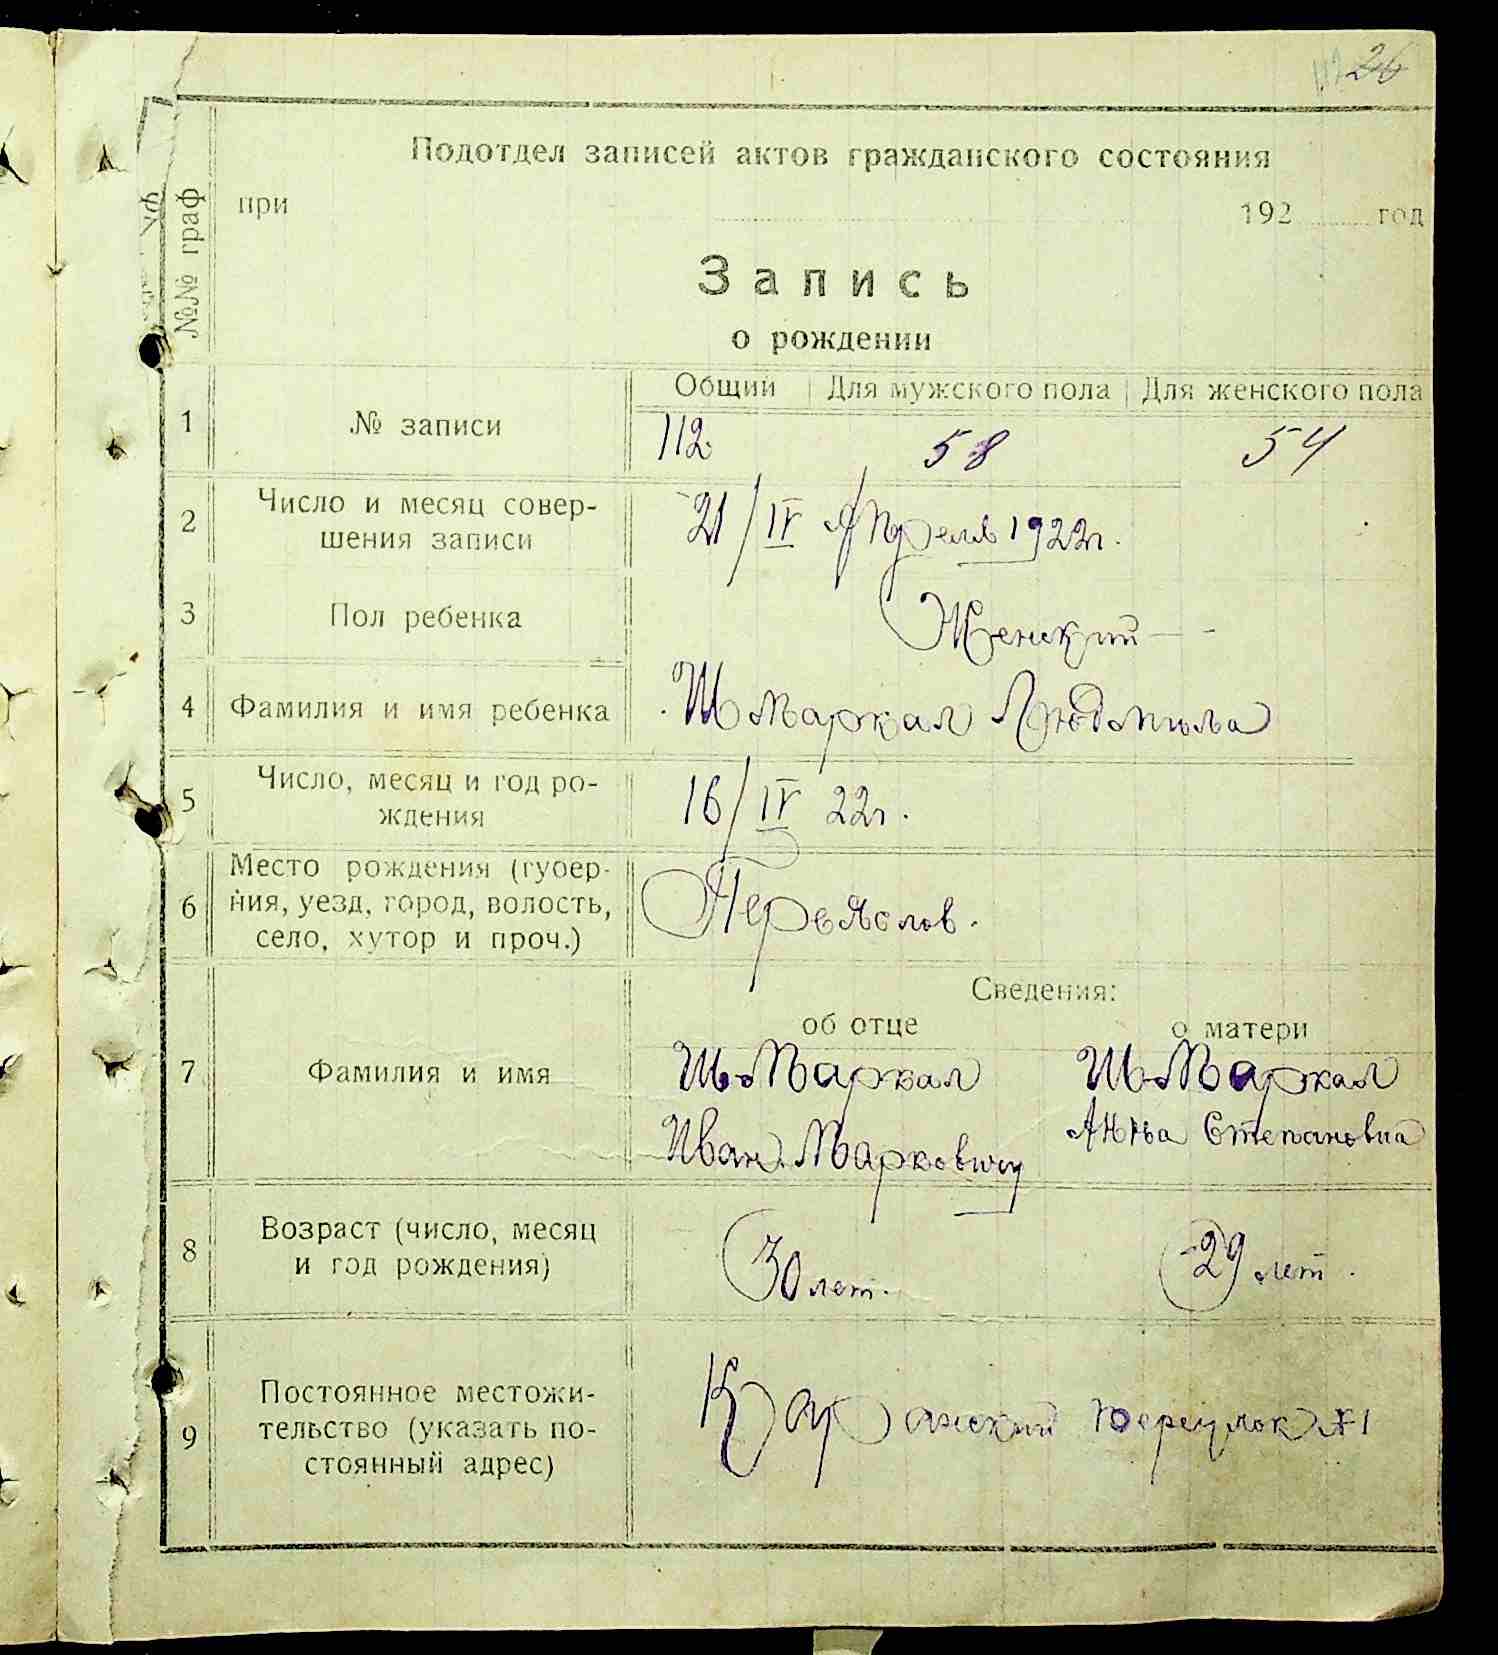 26
Подотдел записей актов гражданского состояния
при 192 год
Запись
о рождении
№№ граф
Общий Для мужского пола Для женского пола
1 № записи 112. 58 54
2 Число и месяц совер-
шения записи 21/IV Апреля 1922г.
3 Пол ребенка Женский
4 Фамилия и имя ребенка Шмаркал Людмила
5 Число, месяц и год ро-
ждения 16/IV 22г.
6 Место рождения (губер-
ния, уезд, город, волость,
село, хутор и проч.) Переяслов.
Сведения:
об отце о матери
7 Фамилия и имя Шмаркал Шмаркал
Иван Маркович Анна Степановна
8 Возраст (число, месяц
и год рождения) 30 лет. 29 лет.
9 Постоянное местожи-
тельство (указать по-
стоянный адрес) Каранский переулок №1